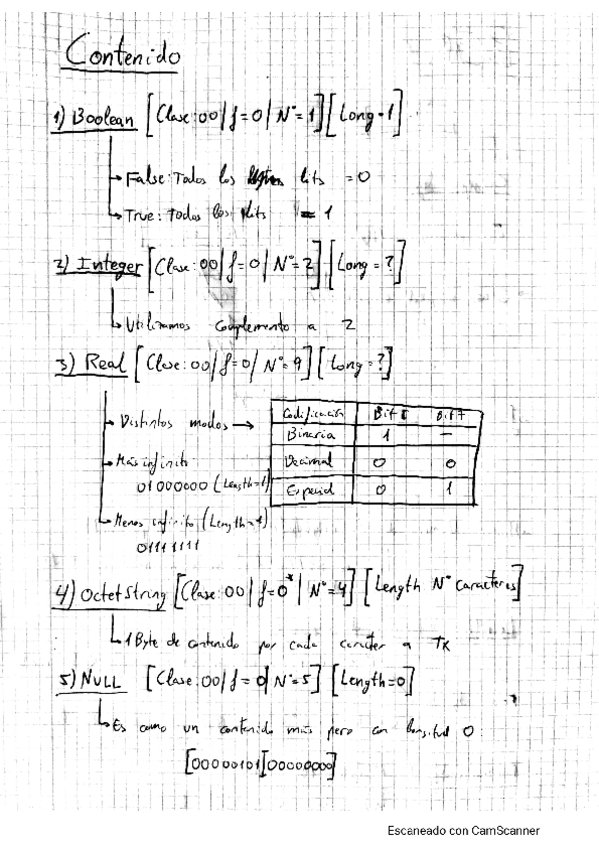 Contenido
1) Boolean [Clase: 00 | f = 0 | Nº = 1] [Long = 1]
False: Todos los bits = 0
True: Todos los bits = 1
2) Integer [Clase: 00 | f = 0 | Nº = 2] [Long = ?]
Utilizamos complemento a 2
3) Real [Clase: 00 | f = 0 | Nº = 9] [Long = ?]
Distintos modos →
Codificación Bit 8 Bit 7
Binaria 1 —
Decimal 0 0
Especial 0 1
Más infinito
01000000 (Length=1)
Menos infinito (Length=1)
01111111
4) OctetString [Clase: 00 | f = 0* | Nº = 4] [Length Nº caracteres]
1 Byte de contenido por cada caracter a TX
5) NULL [Clase: 00 | f = 0 | Nº = 5] [Length = 0]
Es como un contenido más pero con longitud 0:
[00000101][00000000]
Escaneado con CamScanner